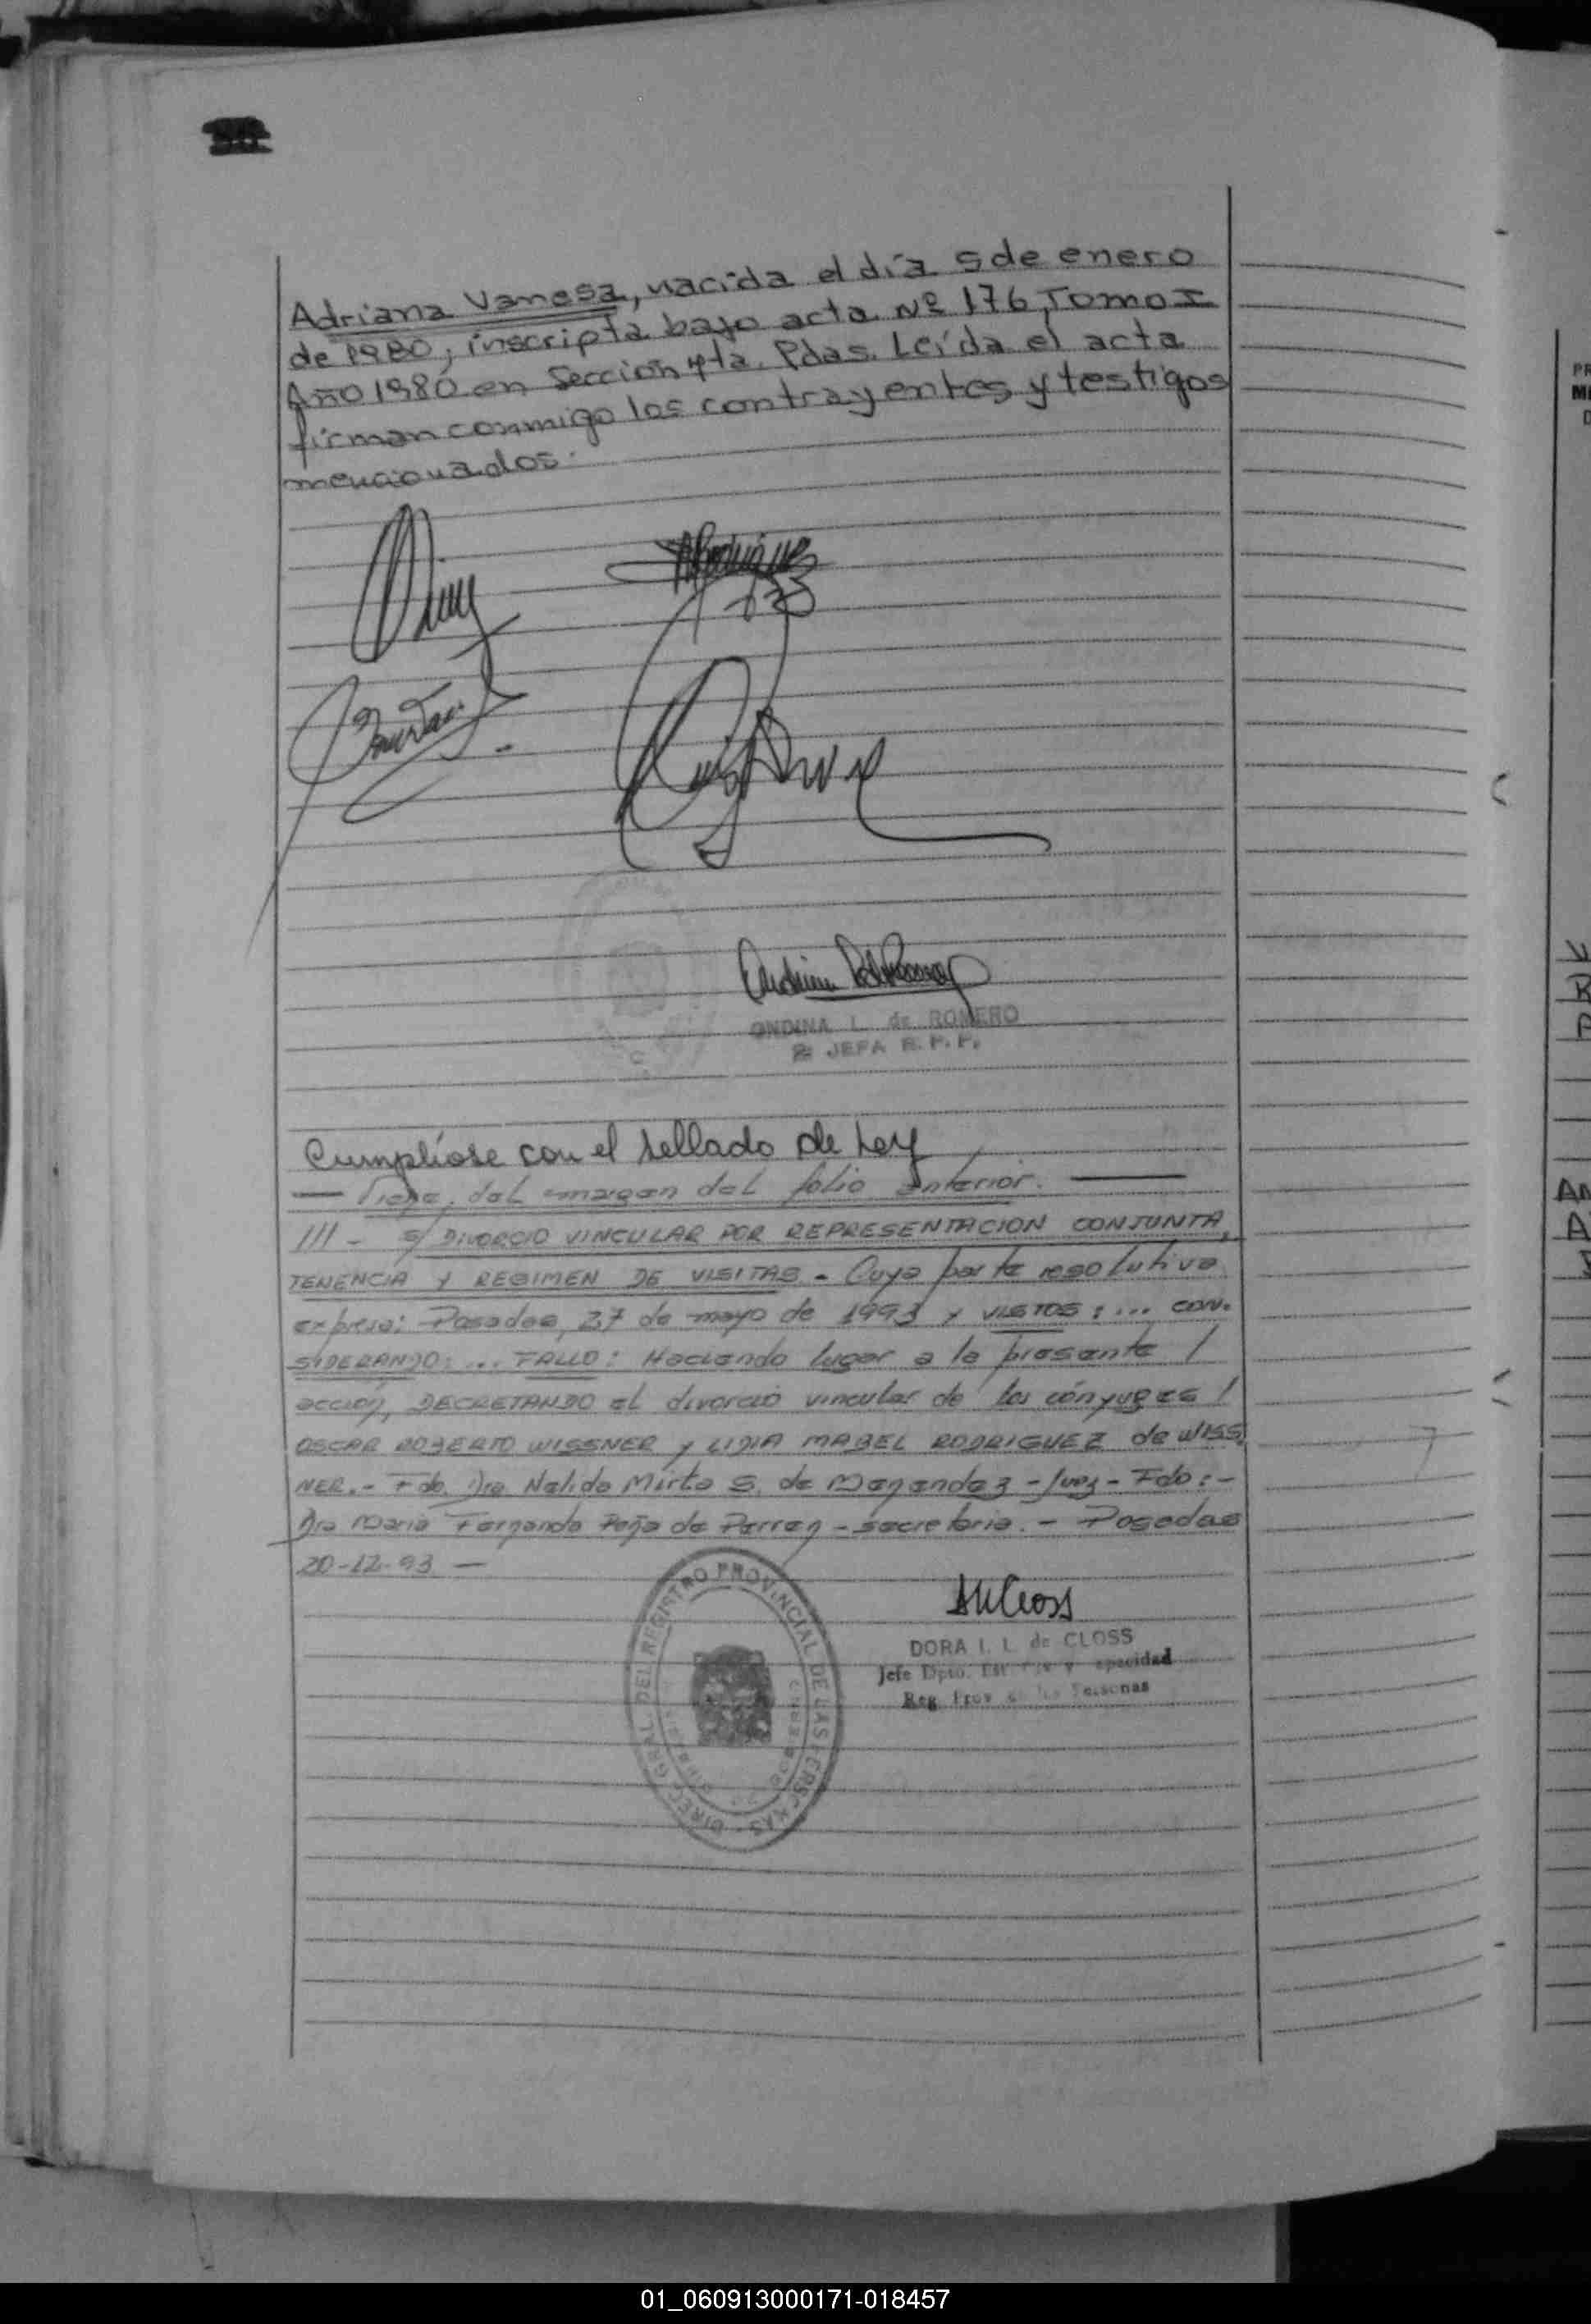 Adriana Vanesa, nacida el día 5 de enero
de 1980, inscripta bajo acta Nº 176, Tomo I
Año 1980 en Sección 4ta. Pdas. Leída el acta
firman conmigo los contrayentes y testigos
mencionados.
ONDINA L. de ROMERO
JEFA R. P. P.
Cumplíose con el sellado de Ley
— Viene del margen del folio anterior. —
/// - s/ DIVORCIO VINCULAR POR REPRESENTACION CONJUNTA,
TENENCIA Y REGIMEN DE VISITAS - Cuya parte resolutiva
expresa: Posadas, 27 de mayo de 1993 y VISTOS: ... CON-
SIDERANDO: ... FALLO: Haciendo lugar a la presente /
acción, DECRETANDO el divorcio vincular de los cónyuges /
OSCAR ROBERTO WISSNER y LIDIA MABEL RODRIGUEZ de WISS
NER.- Fdo. Dra Nelida Mirta S. de Menendez - Juez - Fdo: -
Dra Maria Fernanda Peña de - secretaria. - Posadas
20-12-93 —
DIREC. GRAL. DEL REGISTRO PROVINCIAL DE LAS PERSONAS
DORA I. L. de CLOSS
Jefe Dpto. y Capacidad
Reg. Prov. de las Personas
01_060913000171-018457